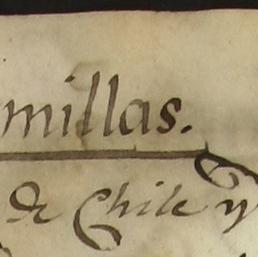 millas.
de Chile y